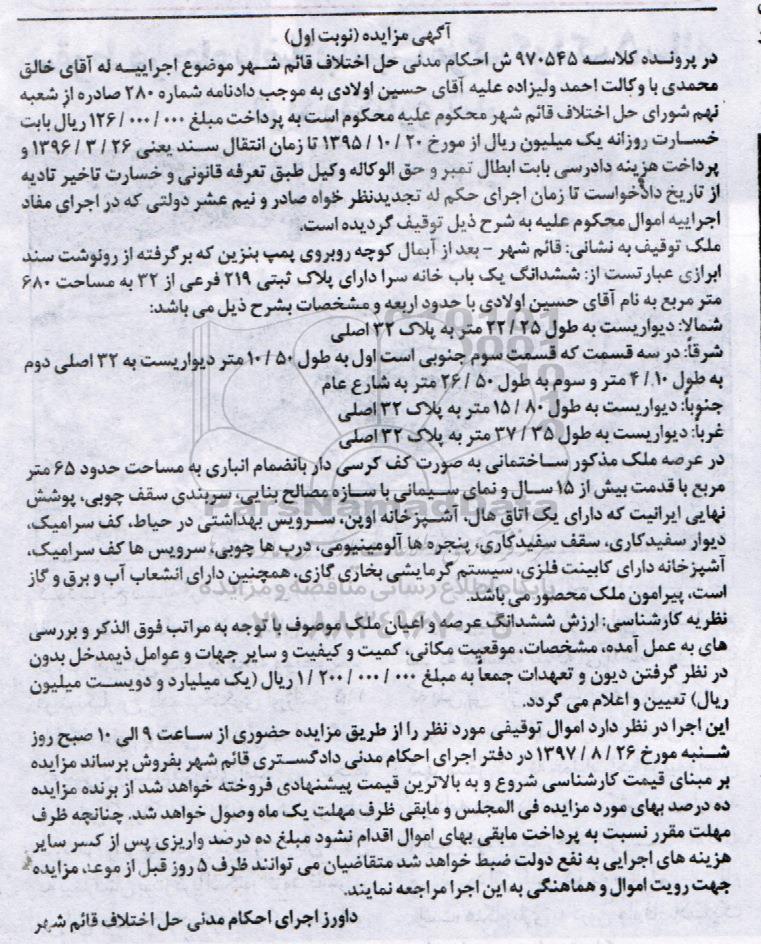 آگهی مزایده (نوبت اول)
در پرونده کلاسه ۹۷۰۵۴۵ ش احکام مدنی حل اختلاف قائم شهر موضوع اجراییه له آقای خالق
محمدی با وکالت احمد ولیزاده علیه آقای حسین اولادی به موجب دادنامه شماره ۲۸۰ صادره از شعبه
نهم شورای حل اختلاف قائم شهر محکوم علیه محکوم است به پرداخت مبلغ ۱۲۶/۰۰۰/۰۰۰ ریال بابت
خسارت روزانه یک میلیون ریال از مورخ ۱۳۹۵/۱۰/۲۰ تا زمان انتقال سند یعنی ۱۳۹۶/۳/۲۶ و
پرداخت هزینه دادرسی بابت ابطال تمبر و حق الوکاله وکیل طبق تعرفه قانونی و خسارت تاخیر تادیه
از تاریخ دادخواست تا زمان اجرای حکم له تجدیدنظر خواه صادر و نیم عشر دولتی که در اجرای مفاد
اجراییه اموال محکوم علیه به شرح ذیل توقیف گردیده است.
ملک توقیف به نشانی: قائم شهر - بعد از آبمال کوچه روبروی پمپ بنزین که برگرفته از رونوشت سند
ابرازی عبارتست از: ششدانگ یک باب خانه سرا دارای پلاک ثبتی ۲۱۹ فرعی از ۳۲ به مساحت ۶۸۰
متر مربع به نام آقای حسین اولادی با حدود اربعه و مشخصات بشرح ذیل می باشد:
شمالا: دیواریست به طول ۲۲/۲۵ متر به پلاک ۳۲ اصلی
شرقاً: در سه قسمت که قسمت سوم جنوبی است اول به طول ۱۰/۵۰ متر دیواریست به ۳۲ اصلی دوم
به طول ۴/۱۰ متر و سوم به طول ۲۶/۵۰ متر به شارع عام
جنوباً: دیواریست به طول ۱۵/۸۰ متر به پلاک ۳۲ اصلی
غرباً: دیواریست به طول ۳۷/۳۵ متر به پلاک ۳۲ اصلی
در عرصه ملک مذکور ساختمانی به صورت کف کرسی دار بانضمام انباری به مساحت حدود ۶۵ متر
مربع با قدمت بیش از ۱۵ سال و نمای سیمانی با سازه مصالح بنایی، سربندی سقف چوبی، پوشش
نهایی ایرانیت که دارای یک اتاق هال، آشپزخانه اوپن، سرویس بهداشتی در حیاط، کف سرامیک،
دیوار سفیدکاری، سقف سفیدکاری، پنجره ها آلومینیومی، درب ها چوبی، سرویس ها کف سرامیک،
آشپزخانه دارای کابینت فلزی، سیستم گرمایشی بخاری گازی، همچنین دارای انشعاب آب و برق و گاز
است، پیرامون ملک محصور می باشد.
نظریه کارشناسی: ارزش ششدانگ عرصه و اعیان ملک موصوف با توجه به مراتب فوق الذکر و بررسی
های به عمل آمده، مشخصات، موقعیت مکانی، کمیت و کیفیت و سایر جهات و عوامل ذیمدخل بدون
در نظر گرفتن دیون و تعهدات جمعاً به مبلغ ۱/۲۰۰/۰۰۰/۰۰۰ ریال (یک میلیارد و دویست میلیون
ریال) تعیین و اعلام می گردد.
این اجرا در نظر دارد اموال توقیفی مورد نظر را از طریق مزایده حضوری از ساعت ۹ الی ۱۰ صبح روز
شنبه مورخ ۱۳۹۷/۸/۲۶ در دفتر اجرای احکام مدنی دادگستری قائم شهر بفروش برساند مزایده
بر مبنای قیمت کارشناسی شروع و به بالاترین قیمت پیشنهادی فروخته خواهد شد از برنده مزایده
ده درصد بهای مورد مزایده فی المجلس و مابقی ظرف مهلت یک ماه وصول خواهد شد. چنانچه ظرف
مهلت مقرر نسبت به پرداخت مابقی بهای اموال اقدام نشود مبلغ ده درصد واریزی پس از کسر سایر
هزینه های اجرایی به نفع دولت ضبط خواهد شد متقاضیان می توانند ظرف ۵ روز قبل از موعد مزایده
جهت رویت اموال و هماهنگی به این اجرا مراجعه نمایند.
داورز اجرای احکام مدنی حل اختلاف قائم شهر
ParsNamadData
پایگاه اطلاع رسانی مناقصه و مزایده